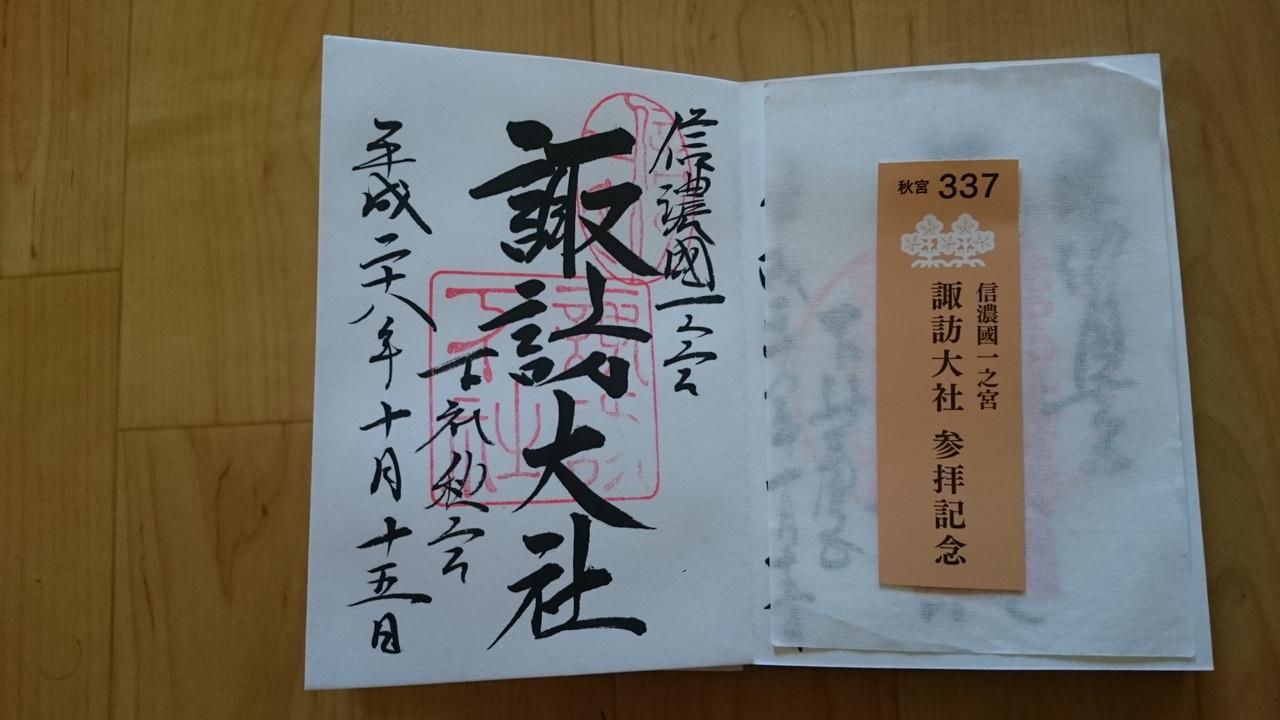 秋宮 337
信濃國一之宮
諏訪大社 参拝記念
信濃國一之宮
諏訪大社
下社秋宮
平成二十八年十月十五日